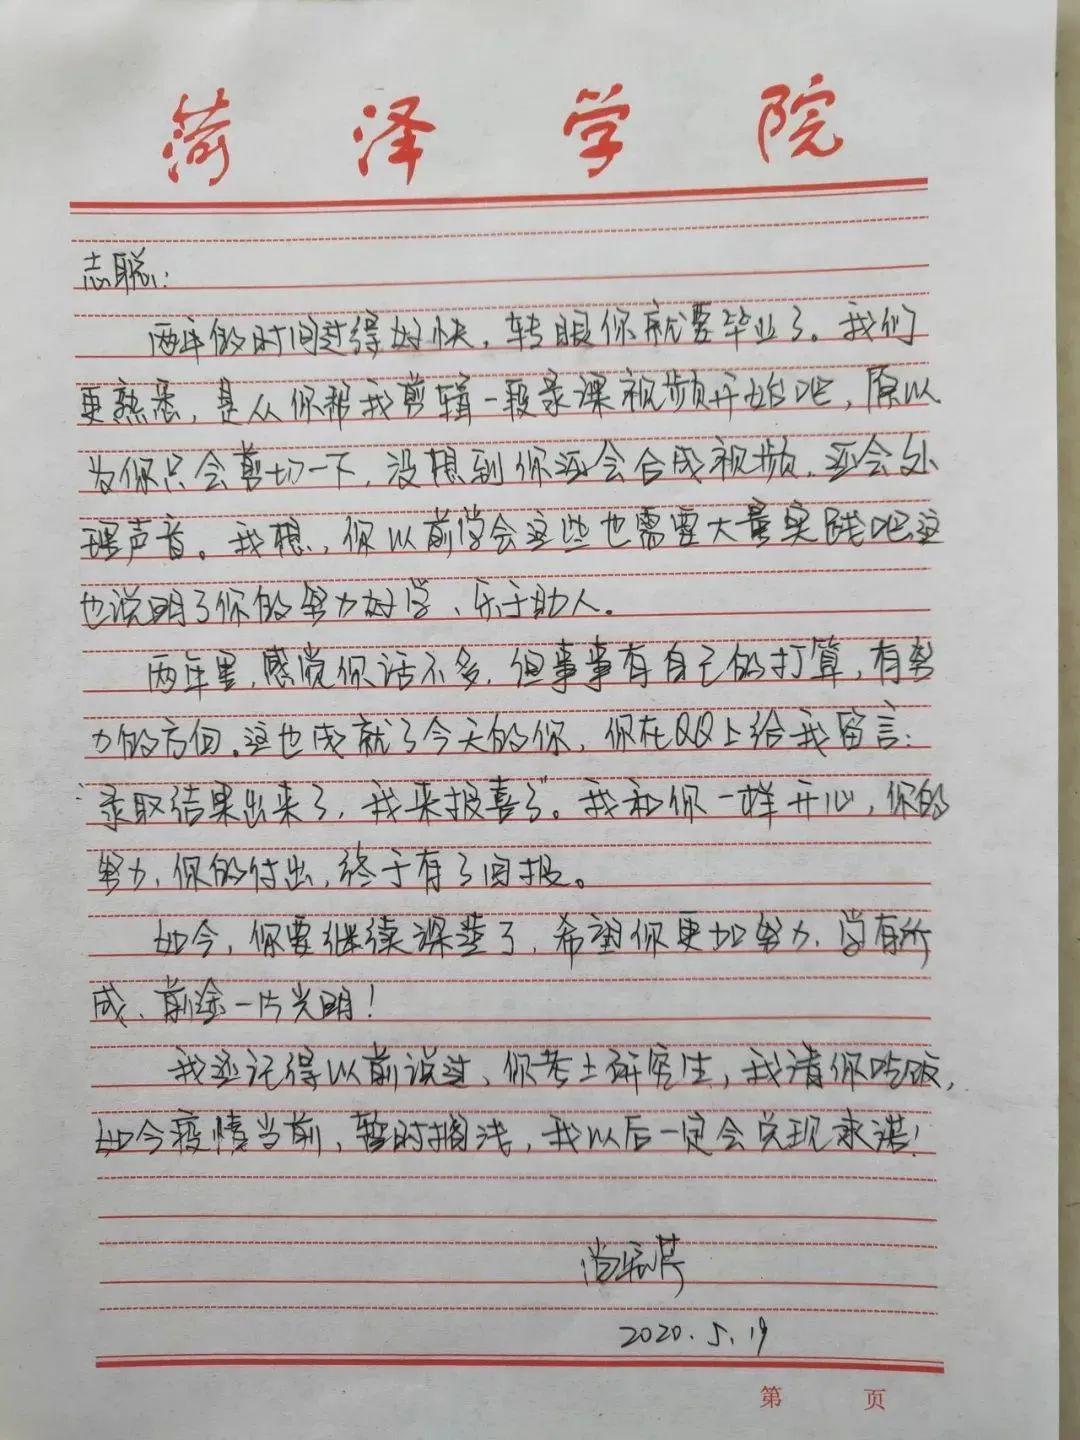 菏泽学院
志聪:
两年的时间过得好快，转眼你就要毕业了。我们
更熟悉，是从你帮我剪辑一段录课视频开始吧，原以
为你只会剪切一下，没想到你还会合成视频，还会处
理声音。我想，你以前学会这些也需要大量实践吧这
也说明了你的努力好学、乐于助人。
两年里，感觉你话不多，但事事有自己的打算，有努
力的方向。这也成就了今天的你，你在QQ上给我留言：
“录取结果出来了，我来报喜了”。我和你一样开心，你的
努力，你的付出，终于有了回报。
如今，你要继续深造了，希望你更加努力、学有所
成、前途一片光明！
我还记得以前说过，你考上研究生，我请你吃饭，
如今疫情当前，暂时搁浅，我以后一定会兑现承诺！
2020.5.19
第 页